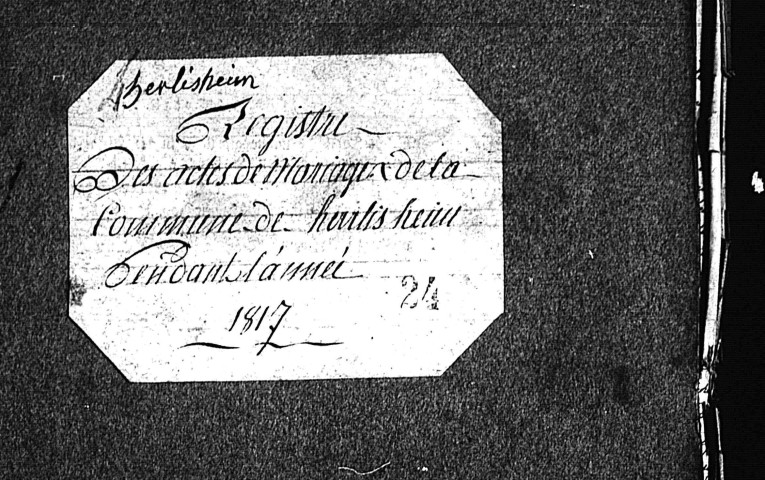 herlisheim
Registre
Des actes de Mariages de la
Commune de herlisheim
Pendant l'année
24
1817